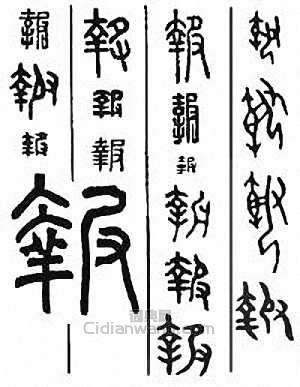 報報報報
報報報報報報
報報報
報報報
報
词典网
Cidianwang.com